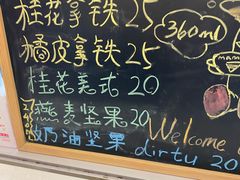 桂花拿铁 25
橘皮拿铁 25
360ml
桂花美式 20
燕麦坚果 20
Welcome
奶油坚果 dirty 20